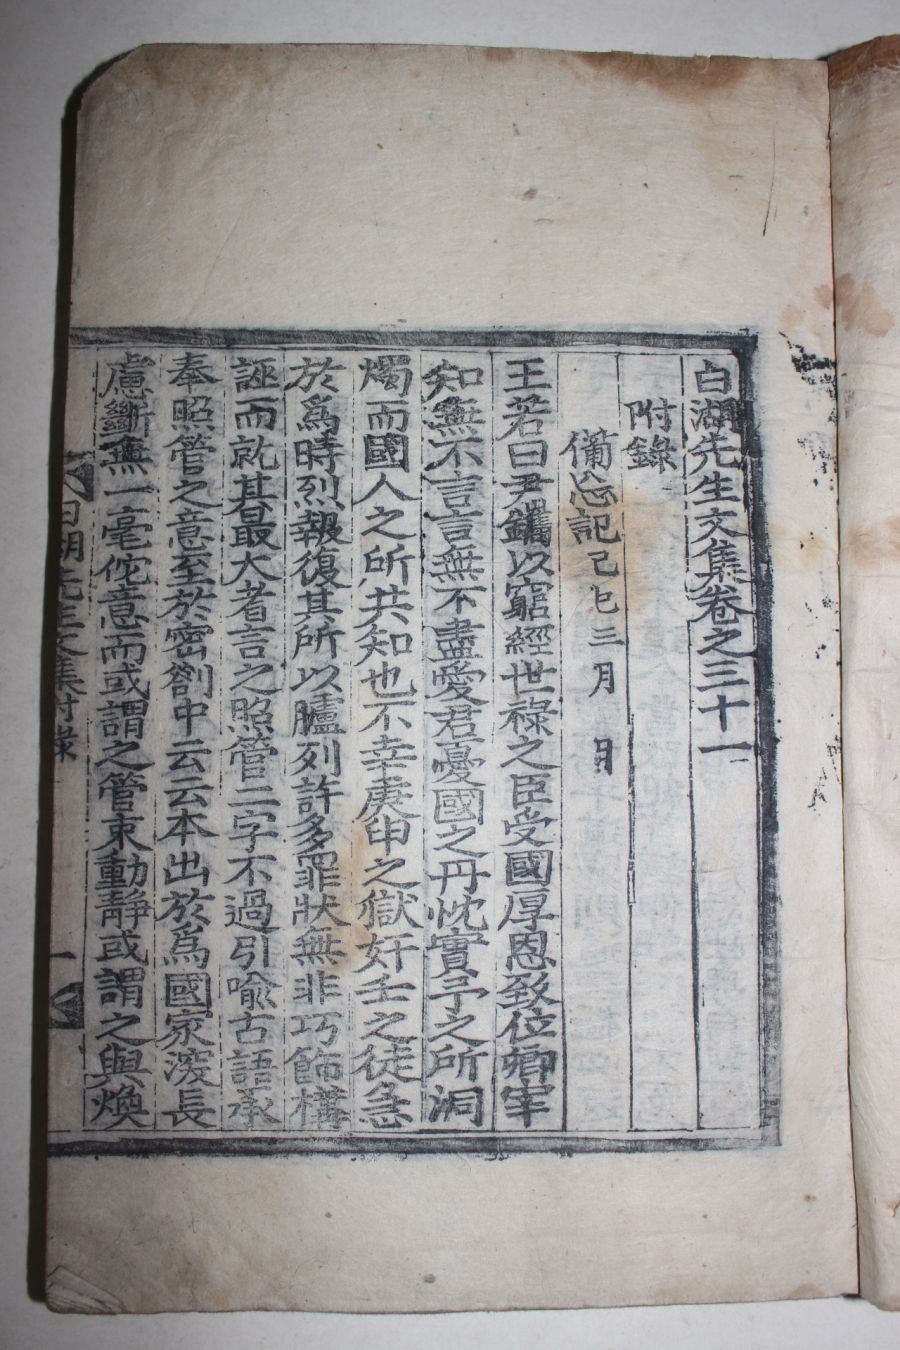 白湖先生文集卷之三十一
附錄
備忘記己巳三月 日
王若曰尹鑴以窮經世祿之臣受國厚恩致位卿宰
知無不言言無不盡愛君憂國之丹忱實予之所洞
燭而國人之所共知也不幸庚申之獄奸壬之徒急
於爲時烈報復其所以臚列許多罪狀無非巧飾構
誣而就其最大者言之照管二字不過引喩古語承
奉照管之意至於密劄中云云本出於爲國家深長
慮斷無一毫佗意而或謂之管束動靜或謂之與煥
白湖先生文集附錄
一